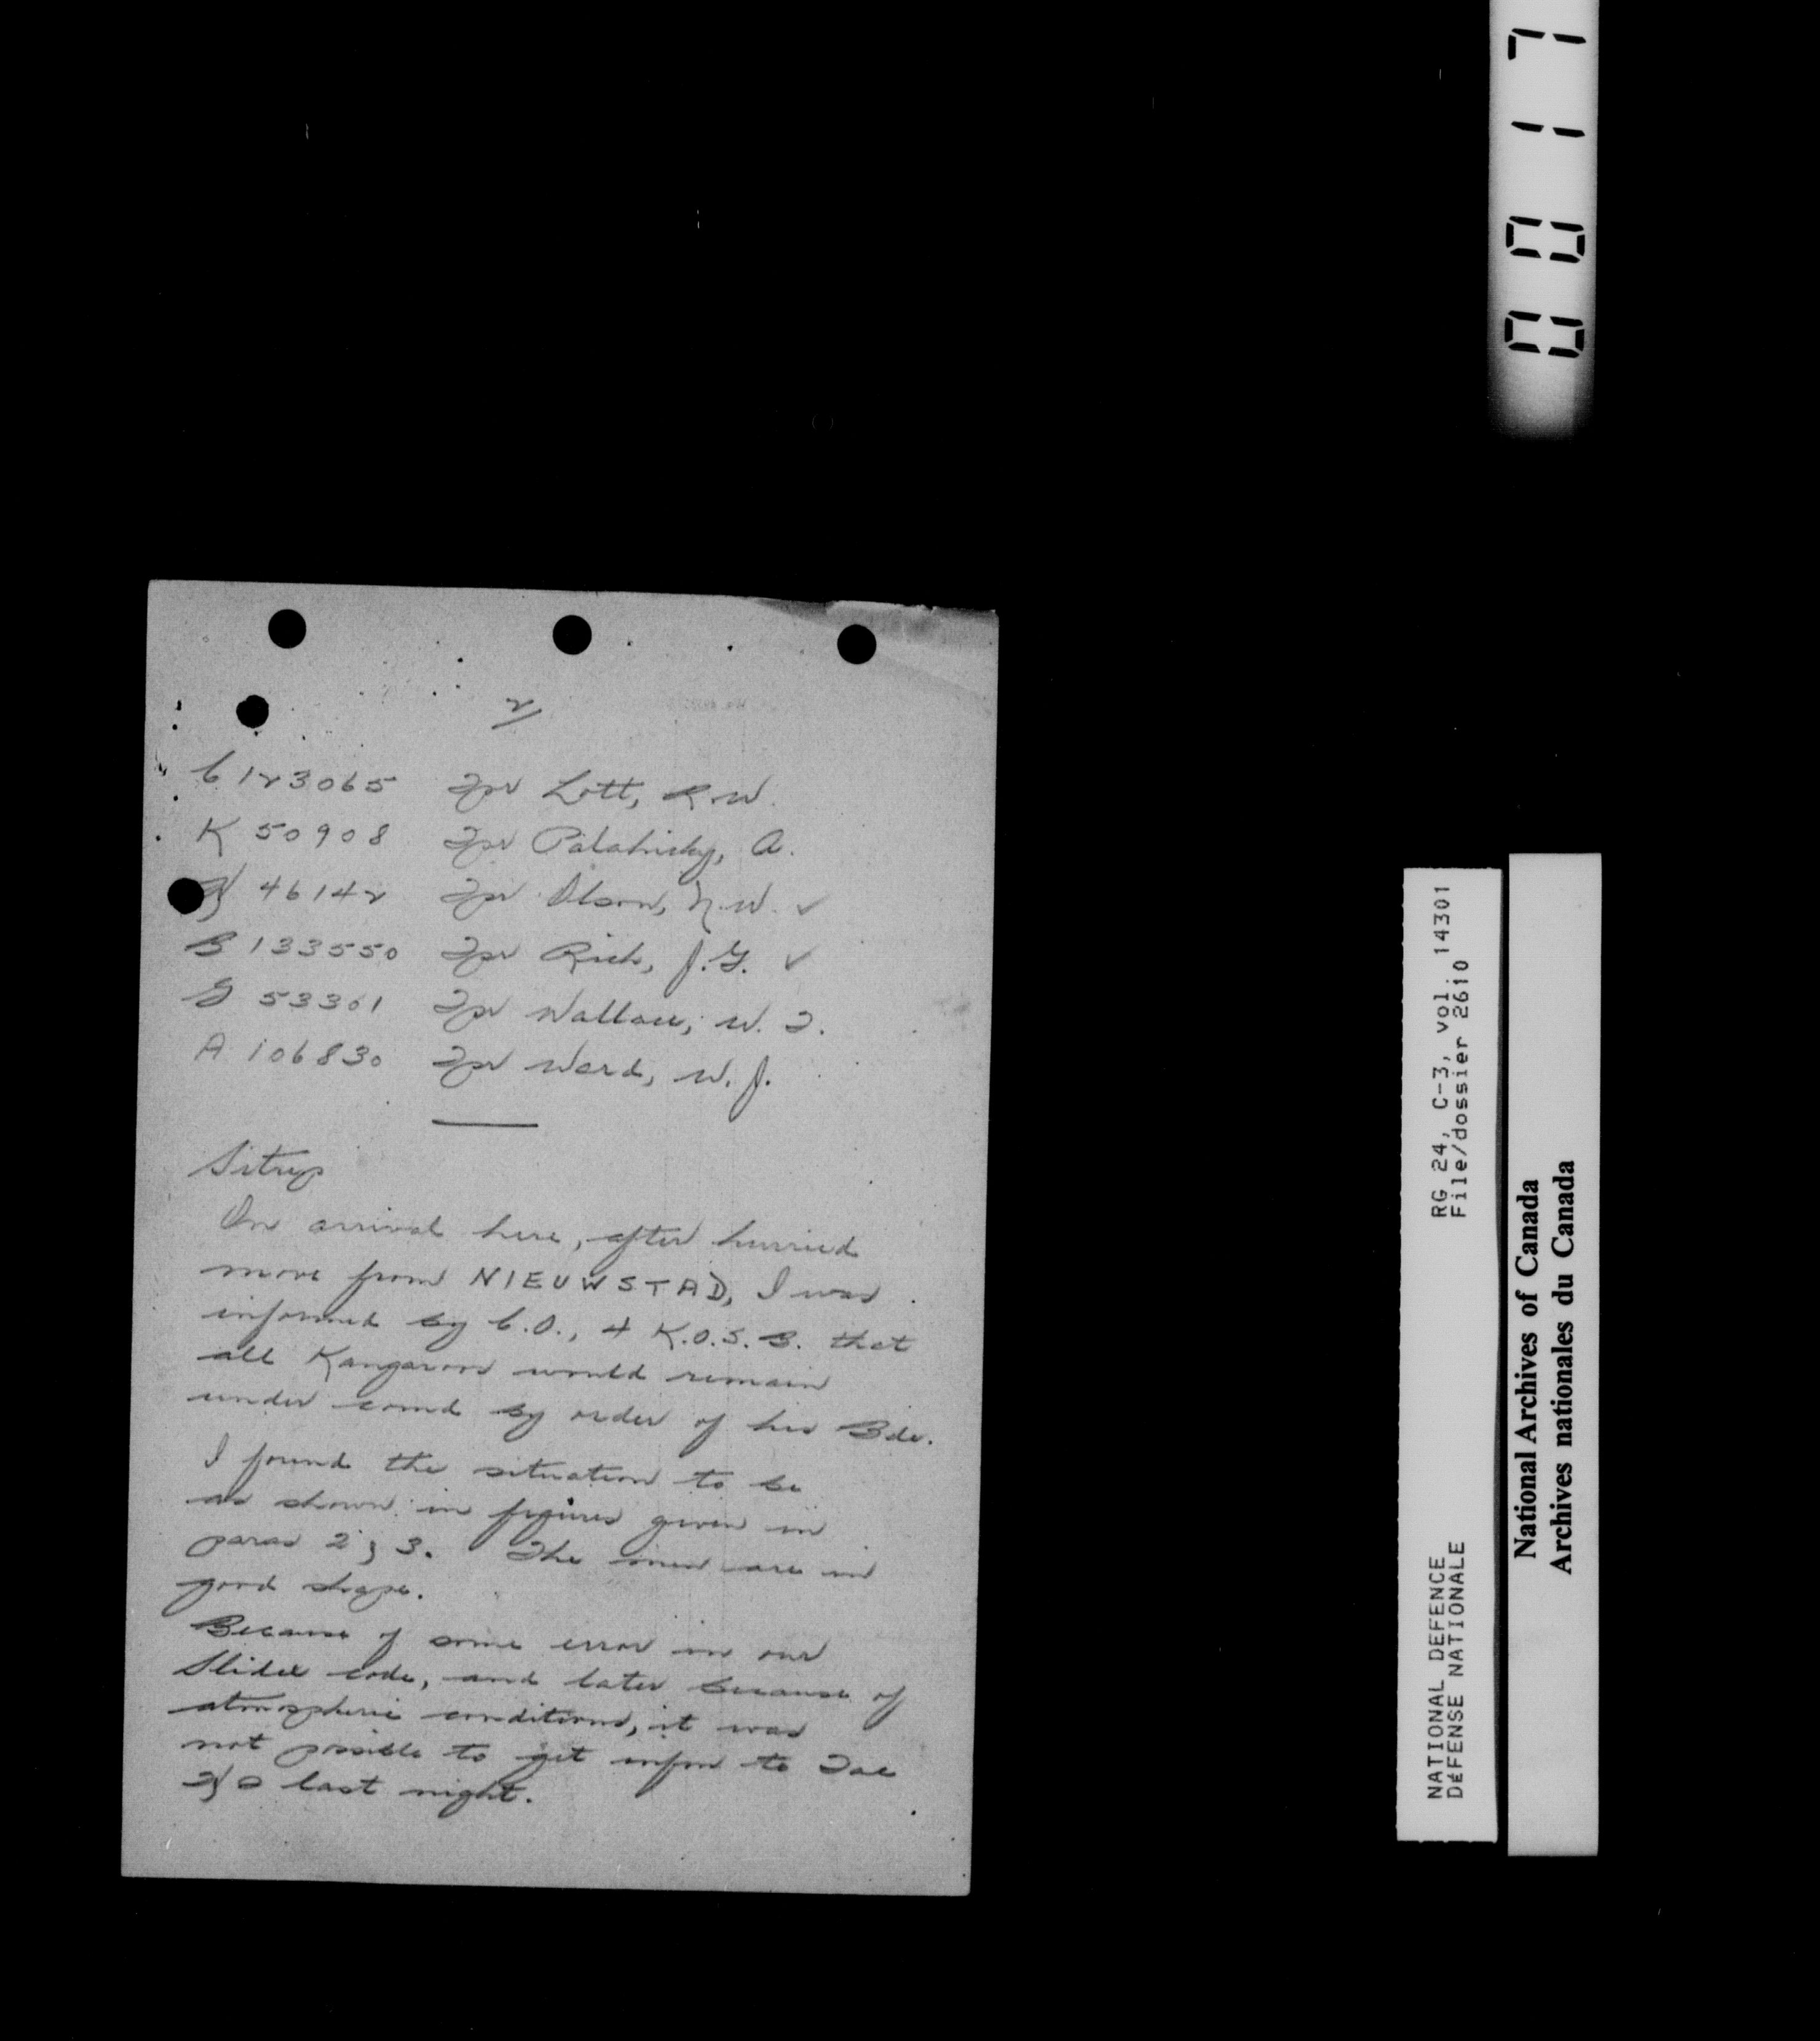 2/
C 123065 Tpr Lott, R.W.
K 50908 Tpr Palahicky, A.
H 46142 Tpr Olson, N.W. ✓
B 133550 Tpr Rich, J.G. ✓
G 53301 Tpr Wallace, W. T.
A 106830 Tpr Ward, W.J.
Sitrep
On arrival here, after hurried
move from NIEUWSTAD, I was
informed by C.O., 4 K.O.S.B. that
all Kangaroos would remain
under comd by order of his Bde.
I found the situation to be
as shown in figures given in
paras 2 & 3. The men are in
good shape.
Because of some error in our
Slidex code, and later because of
atmospheric conditions, it was
not possible to get infm to Tac
HQ last night.
0017
RG 24, C-3, vol. 14301
File/dossier 2610
NATIONAL DEFENCE
DéFENSE NATIONALE
National Archives of Canada
Archives nationales du Canada